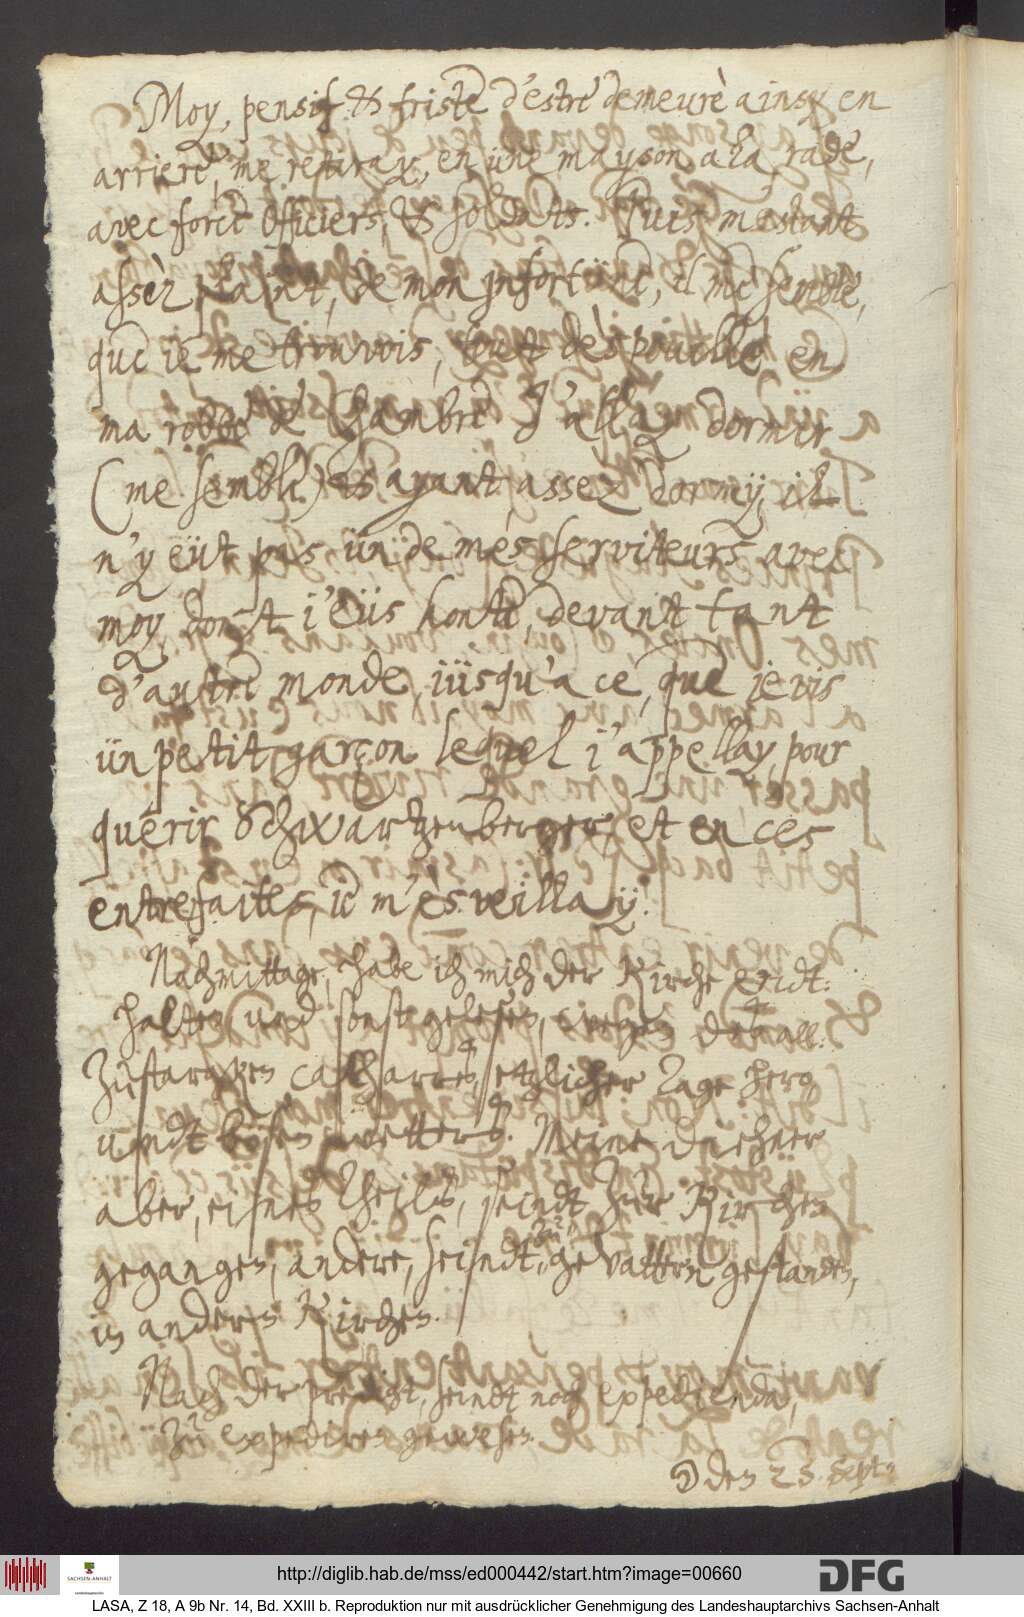 Moy, pensif & triste d'estre demeurè ainsy en
arriere, me retiray, en üne mayson a la rade,
avec force Officiers, & soldats. Puis m'estant
assèz plaint, de mon infortüne, il me semble,
que ie me trouvois, tout despouillè, en
ma robbe de Chambre J'allay dormir
(me sembla) & ayant assez dormy, il
n'y eüt pas ün de mes serviteurs avec
moy dont i'eüs honte, devant tant
d'autre monde, iüsqu'a ce, que ie vis
ün petit garçon lequel i'appellay, pour
querir Schwartzenberger, et en ces
entrefaites, ie m'esveillay.
Nachmittage, habe ich mich der Kirche endt-
halten undt sonst gelesen, wegen deß all-
zustargken catharreß, etzlicher Tage hero
undt bösen wetterß. Meine
aber, eines Theilß, seindt zur Kirchen
gegangen, andere, seindt, zu gevattern gestanden,
in andern Kirchen.
Nach der predigt, seindt noch expedienda,
zu expediren gewesen.
☽ den 23. Sept:
http://diglib.hab.de/mss/ed000442/start.htm?image=00660
SACHSEN-ANHALT
DFG
LASA, Z 18, A 9b Nr. 14, Bd. XXIII b. Reproduktion nur mit ausdrücklicher Genehmigung des Landeshauptarchivs Sachsen-Anhalt